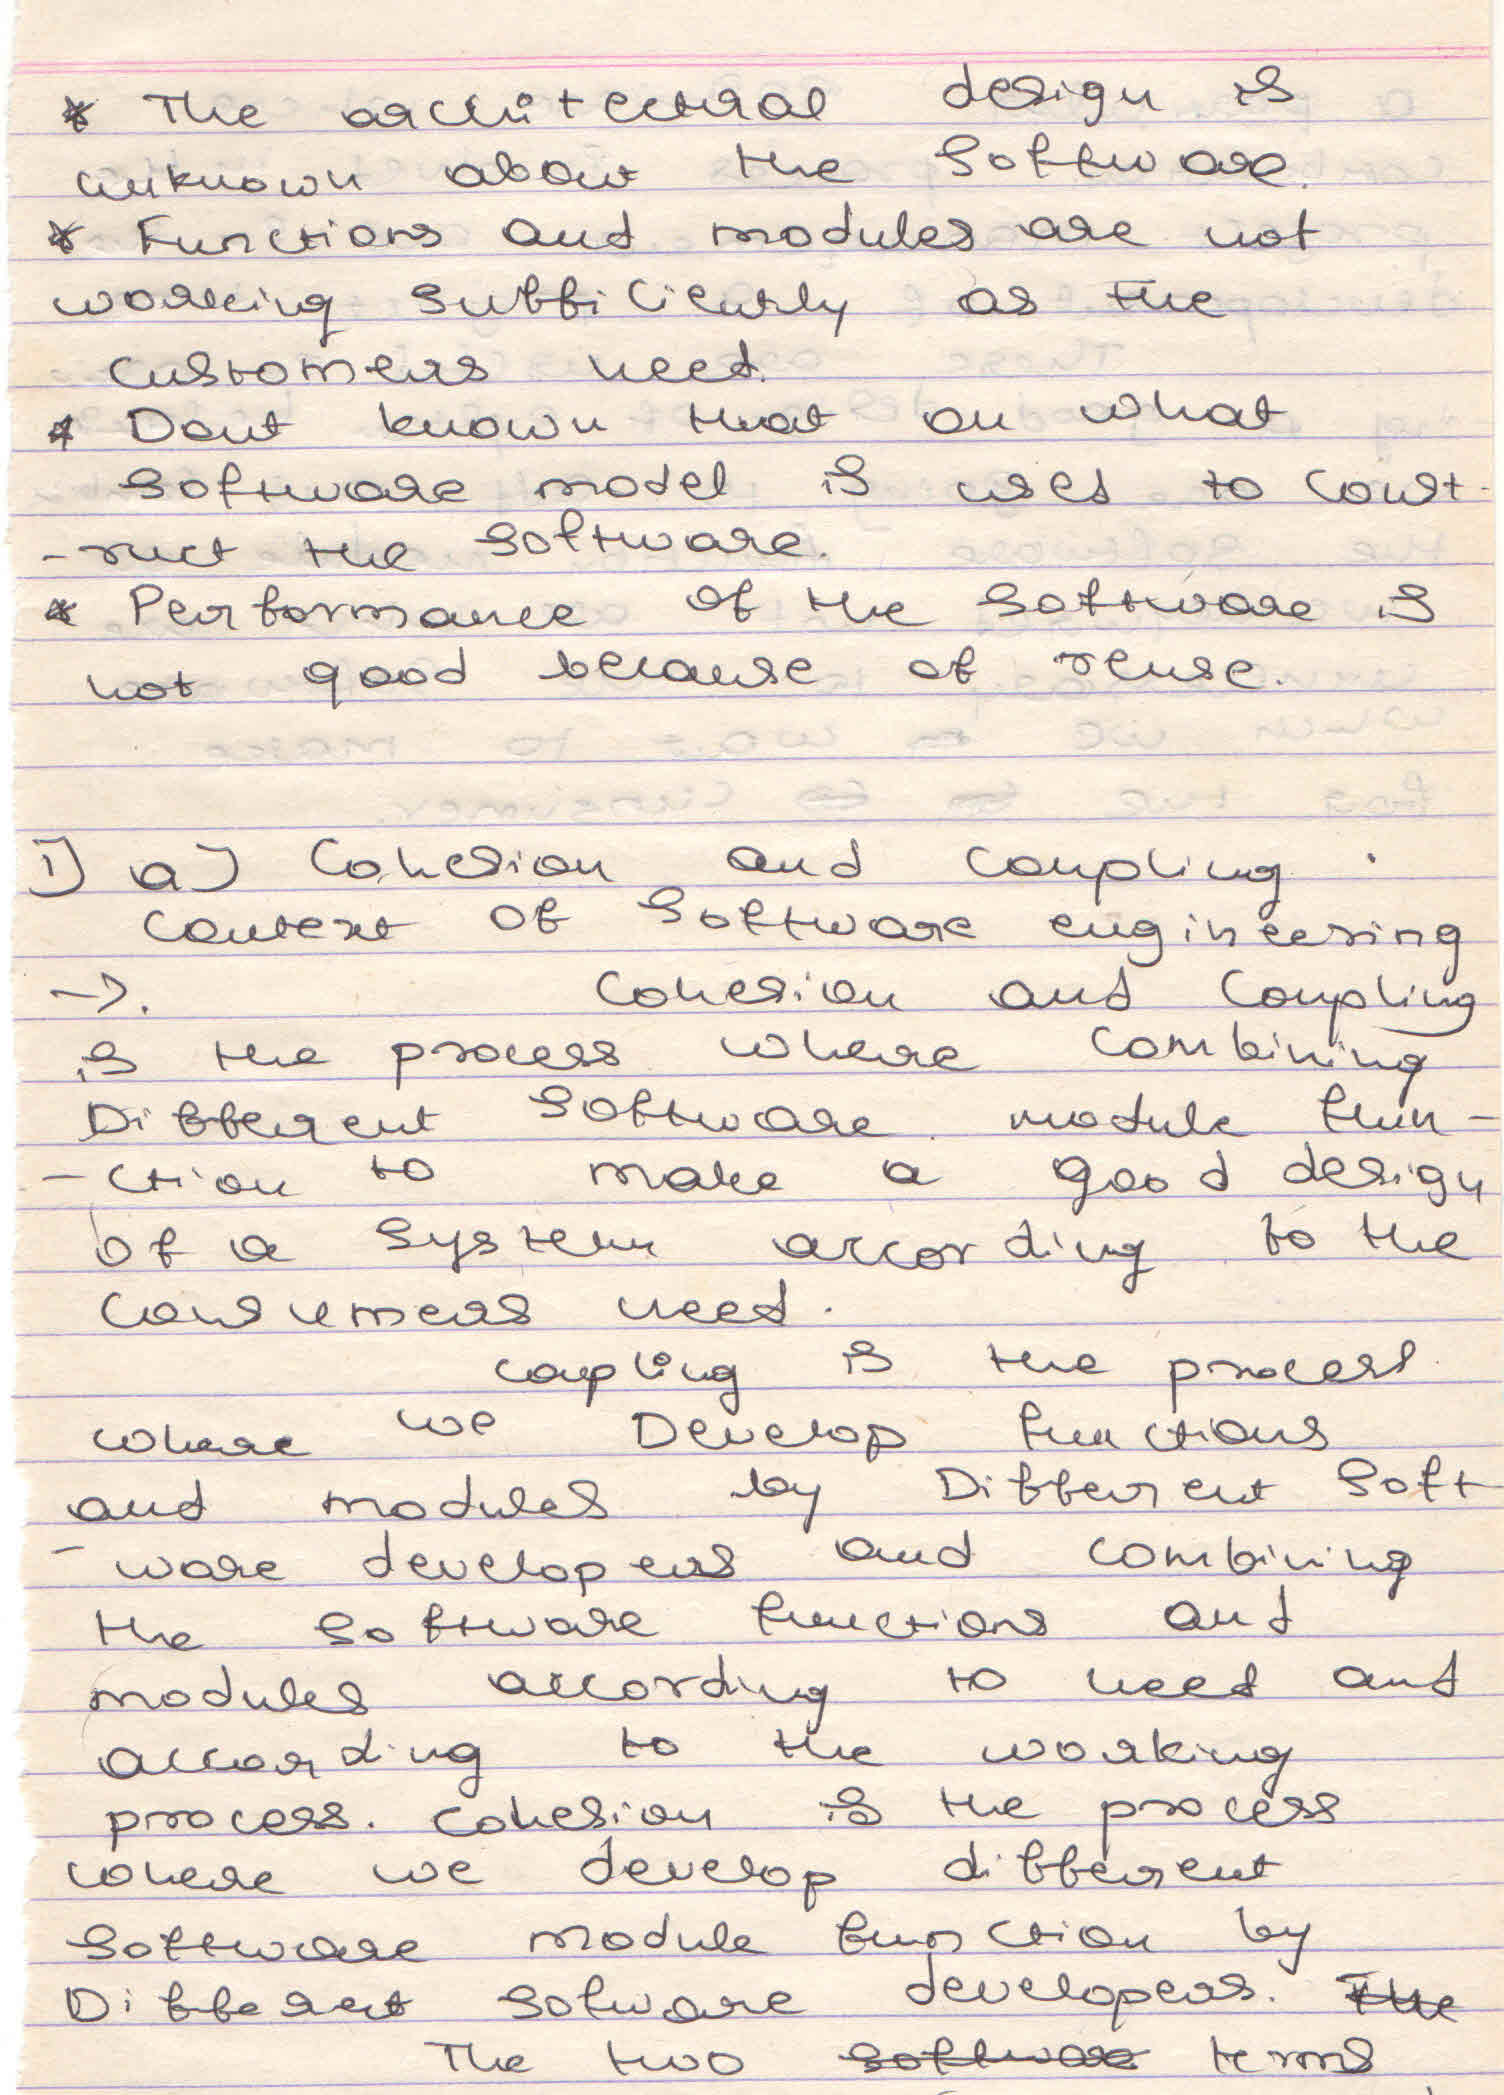 * The architectural design is
unknown about the Software.
* Functions and modules are not
working sufficiently as the
customers need.
* Dont known that on what
Software model is used to const-
-ruct the Software.
* Performance of the Software is
not good because of reuse.
1) a) Cohesion and Coupling.
Context of Software engineering
->. Cohesion and Coupling
is the process where combining
Different Software module fun-
-ction to make a good design
of a System according to the
Consumers need.
Coupling is the process
where we Develop functions
and modules by Different Soft
-ware developers and combining
the Software functions and
modules according to need and
according to the working
process. Cohesion is the process
where we develop different
Software module function by
Different Sotware developers. The
The two software terms